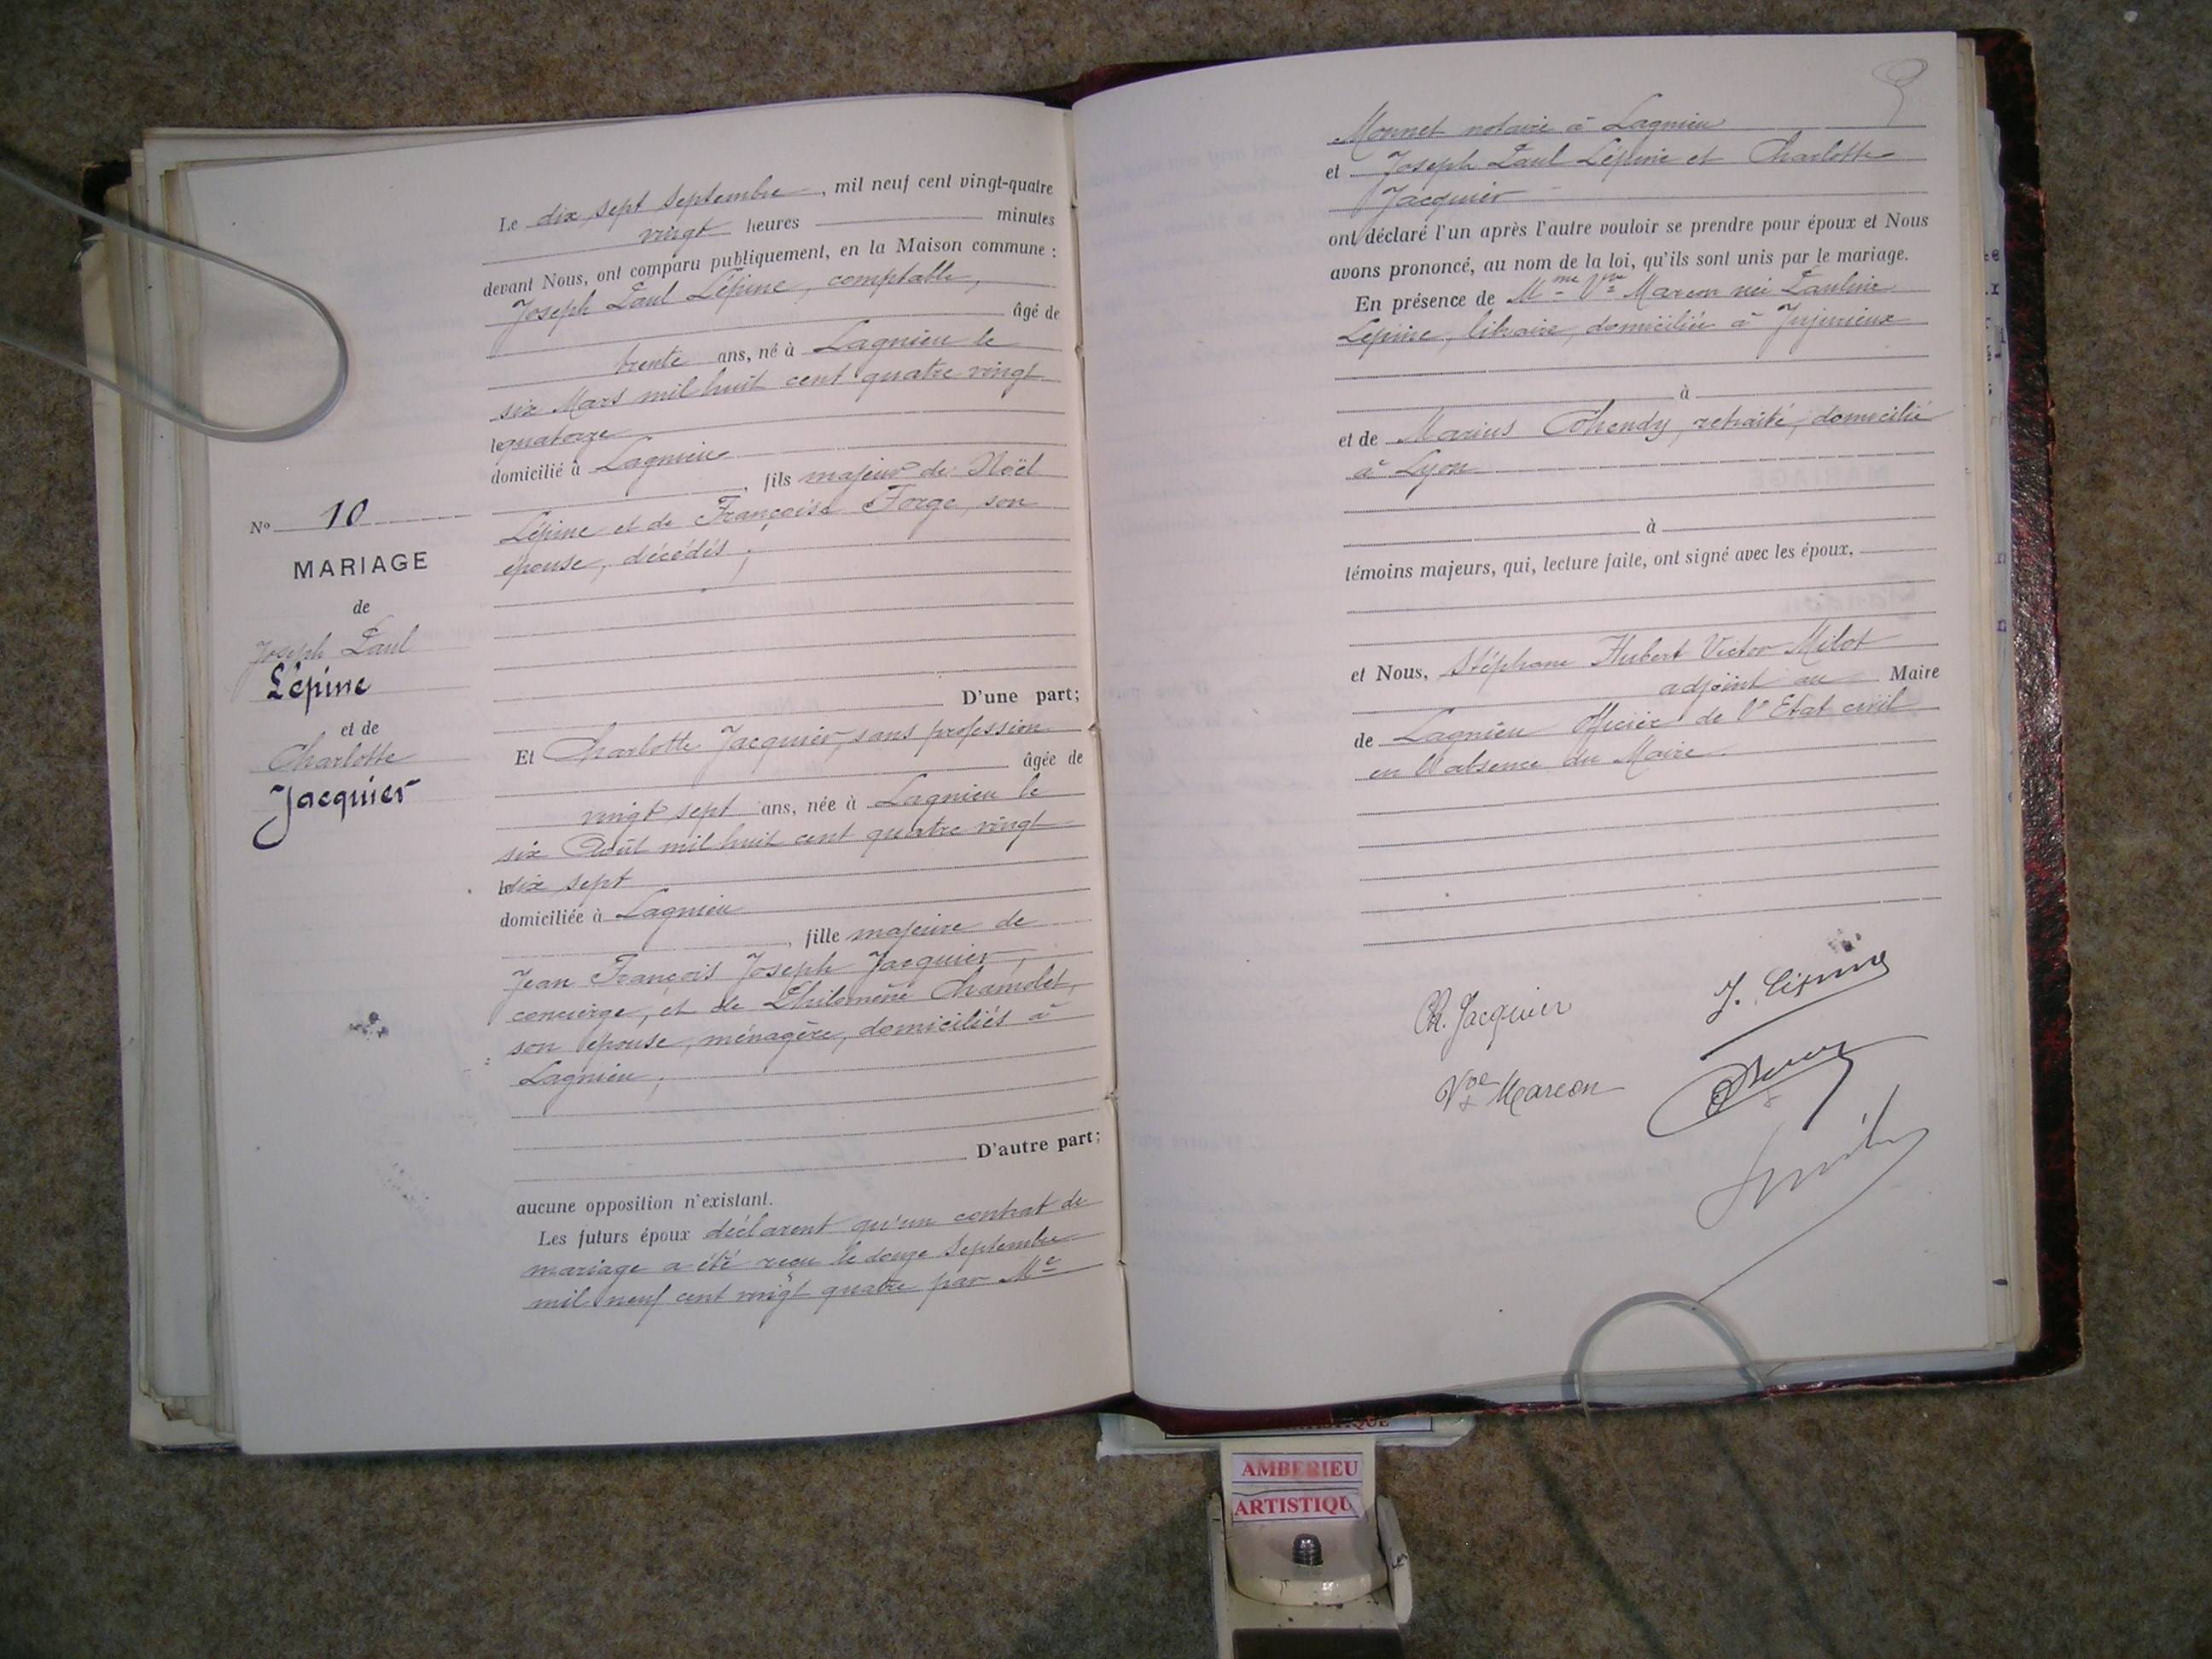 Nº 10
MARIAGE
de
Joseph Paul
Lépine
et de
Charlotte
Jacquier
Le dix sept Septembre, mil neuf cent vingt-quatre
vingt heures minutes
devant Nous, ont comparu publiquement, en la Maison commune :
Joseph Paul Lépine, comptable,
âgé de
trente ans, né à Lagnieu le
six Mars mil huit cent quatre vingt
le quatorze
domicilié à Lagnieu
, fils majeur de Noël
Lépine et de Françoise Forge, son
épouse, décédés ;
D'une part;
Et Charlotte Jacquier, sans profession
âgée de
vingt sept ans, née à Lagnieu le
six Août mil huit cent quatre vingt
le dix sept
domiciliée à Lagnieu
, fille majeure de
Jean François Joseph Jacquier,
concierge, et de Philomène Chamolet,
son épouse, ménagère, domiciliés à
Lagnieu ;
D'autre part;
aucune opposition n'existant.
Les futurs époux déclarent qu'un contrat de
mariage a été reçu le douze Septembre
mil neuf cent vingt quatre par Me
9
Monnet notaire à Lagnieu
et Joseph Paul Lépine et Charlotte
Jacquier
ont déclaré l'un après l'autre vouloir se prendre pour époux et Nous
avons prononcé, au nom de la loi, qu'ils sont unis par le mariage.
En présence de Mme Vve Marcon née Pauline
Lépine, libraire, domiciliée à Jujurieux
à
et de Marius Cohendy, retraité, domicilié
à Lyon
à
témoins majeurs, qui, lecture faite, ont signé avec les époux,
et Nous, Stéphane Hubert Victor Milot
adjoint au Maire
de Lagnieu Officier de l'Etat civil
en l'absence du Maire
Ch. Jacquier
J. Lépine
Vve Marcon
AMBERIEU
ARTISTIQU